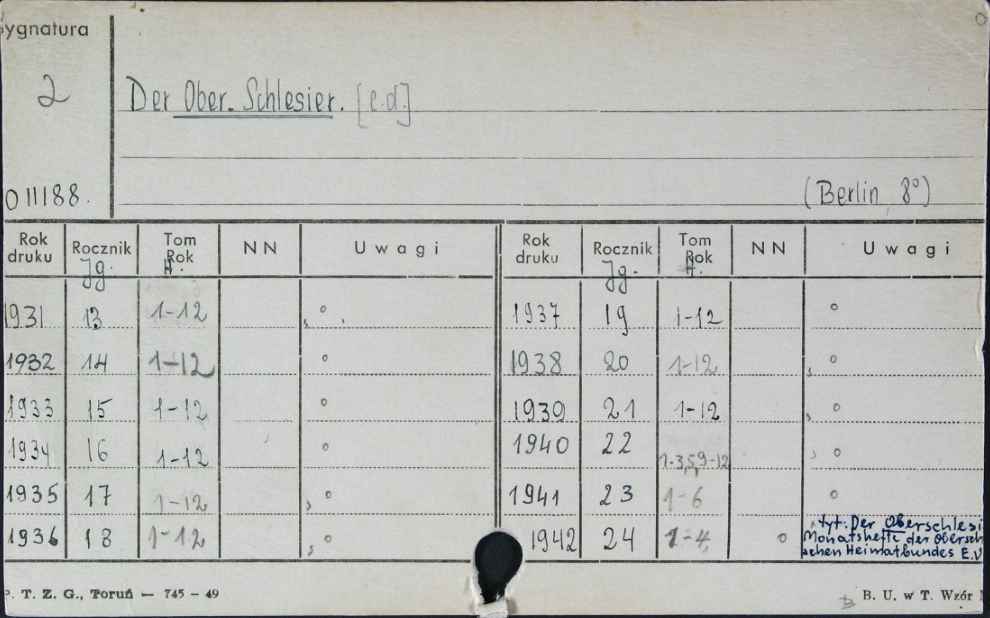 Sygnatura
2
Der Ober-Schlesier. [c.d.]
011188.
(Berlin, 8°)
Rok druku Rocznik Jg. Tom Rok H. NN Uwagi Rok druku Rocznik Jg. Tom Rok H. NN Uwagi
1931 13 1-12 1937 19 1-12
1932 14 1-12 1938 20 1-12
1933 15 1-12 1939 21 1-12
1934 16 1-12 1940 22 1-3,5,9-12
1935 17 1-12 1941 23 1-6
1936 18 1-12 1942 24 1-4,
tyt: Der Oberschlesi
Monatshefte der Obersch
schen Heimatbundes E.V
P. T. Z. G., Toruń — 745 - 49
B. U. w T. Wzór